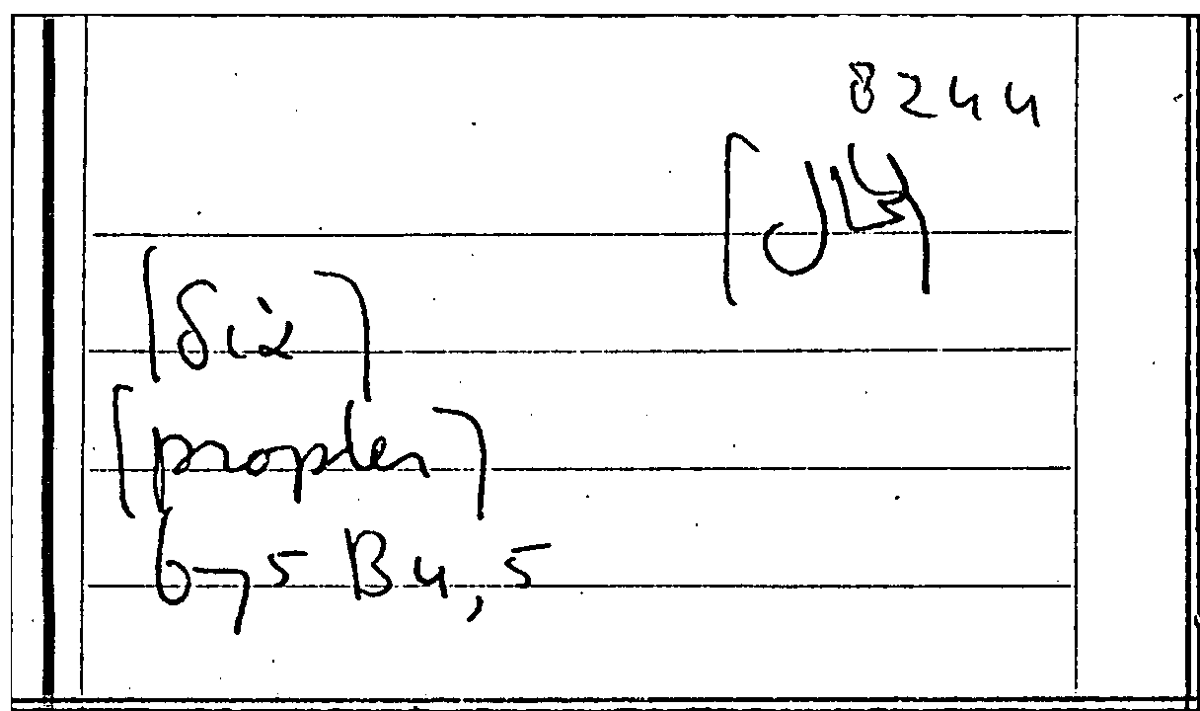 8244
[διὰ]
[propter]
675 B4,5